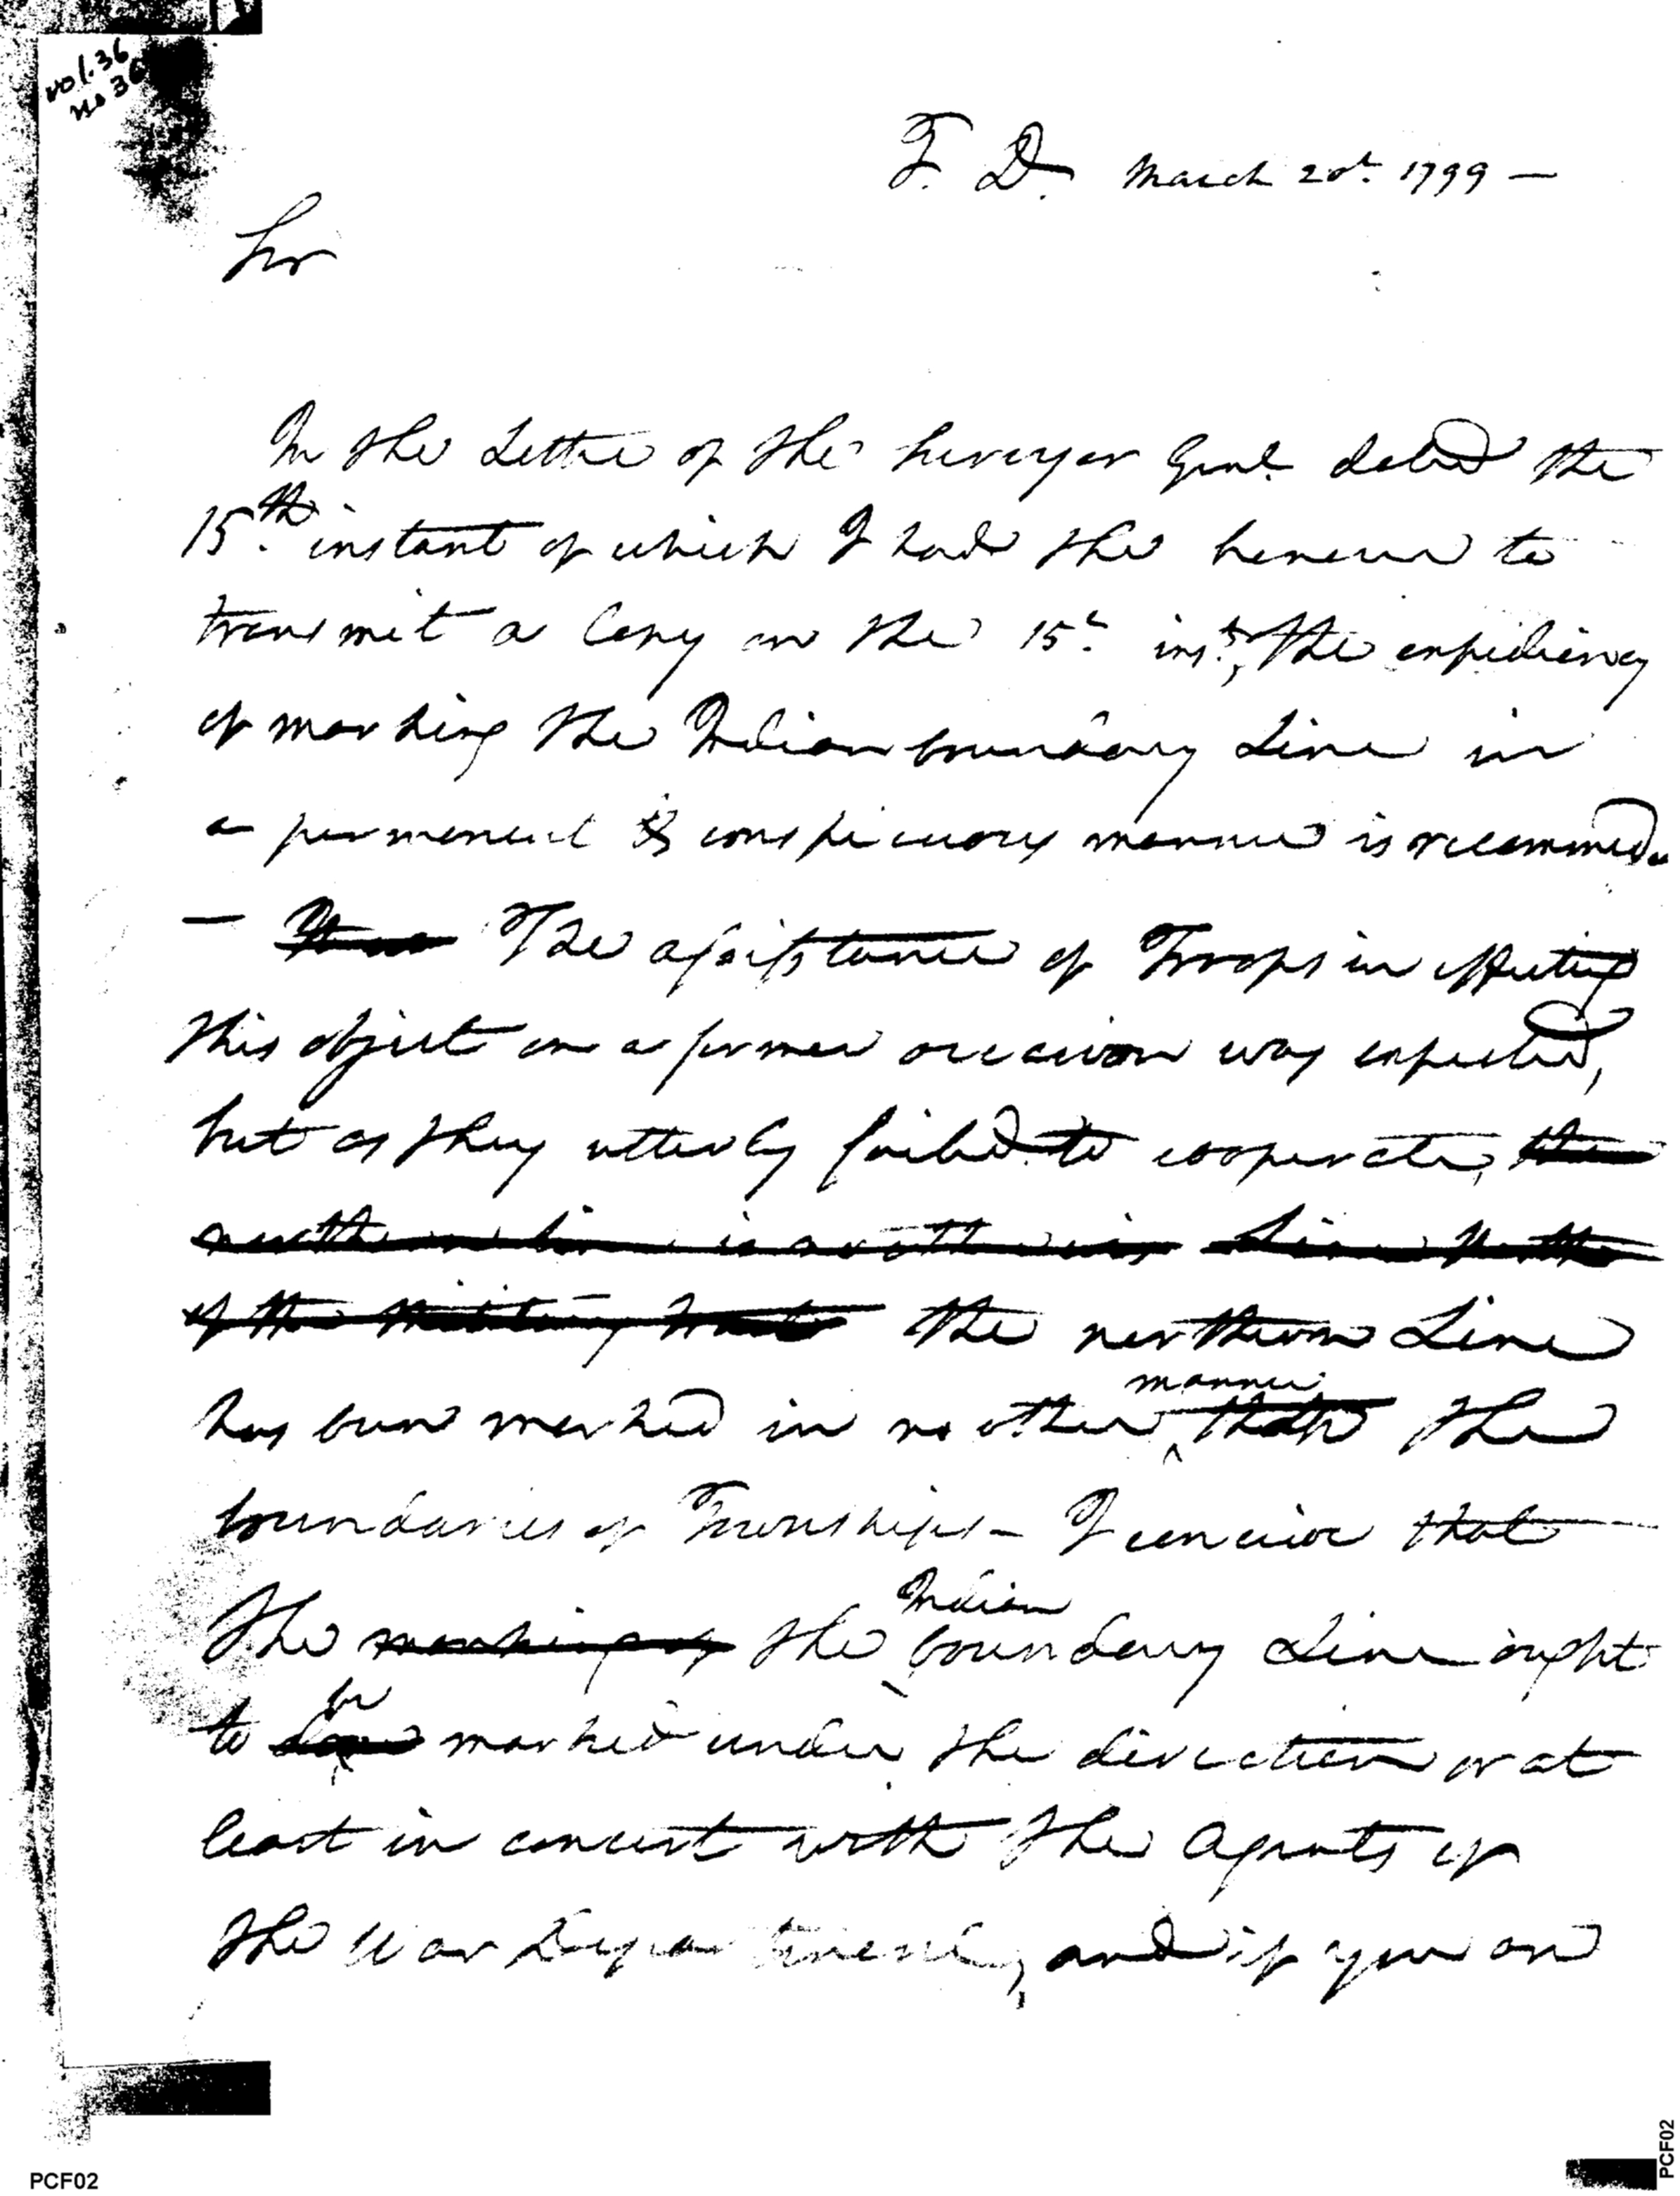 vol. 36
no 36
T. D. March 20th 1799 —
Sir
In the Letter of the Surveyor Genl. dated the
15.th instant of which I had the honour to
transmit a Copy on the 15.th inst., the expediency
of marking the Indian boundary Line in
a permanent & conspicuous manner is recommend
— The assistance of Troops in effecting
this object on a former occasion was expected,
but as they utterly failed to cooperate, the
northern line is no otherwise Line North
of the Military tract the northern Line
has been marked in no other manner than the
boundaries of Townships — I conceive that
the marking of the Indian boundary Line ought
to be marked under the direction or at
least in concert with the Agents of
the War Department, and if you are
PCF02
PCF02